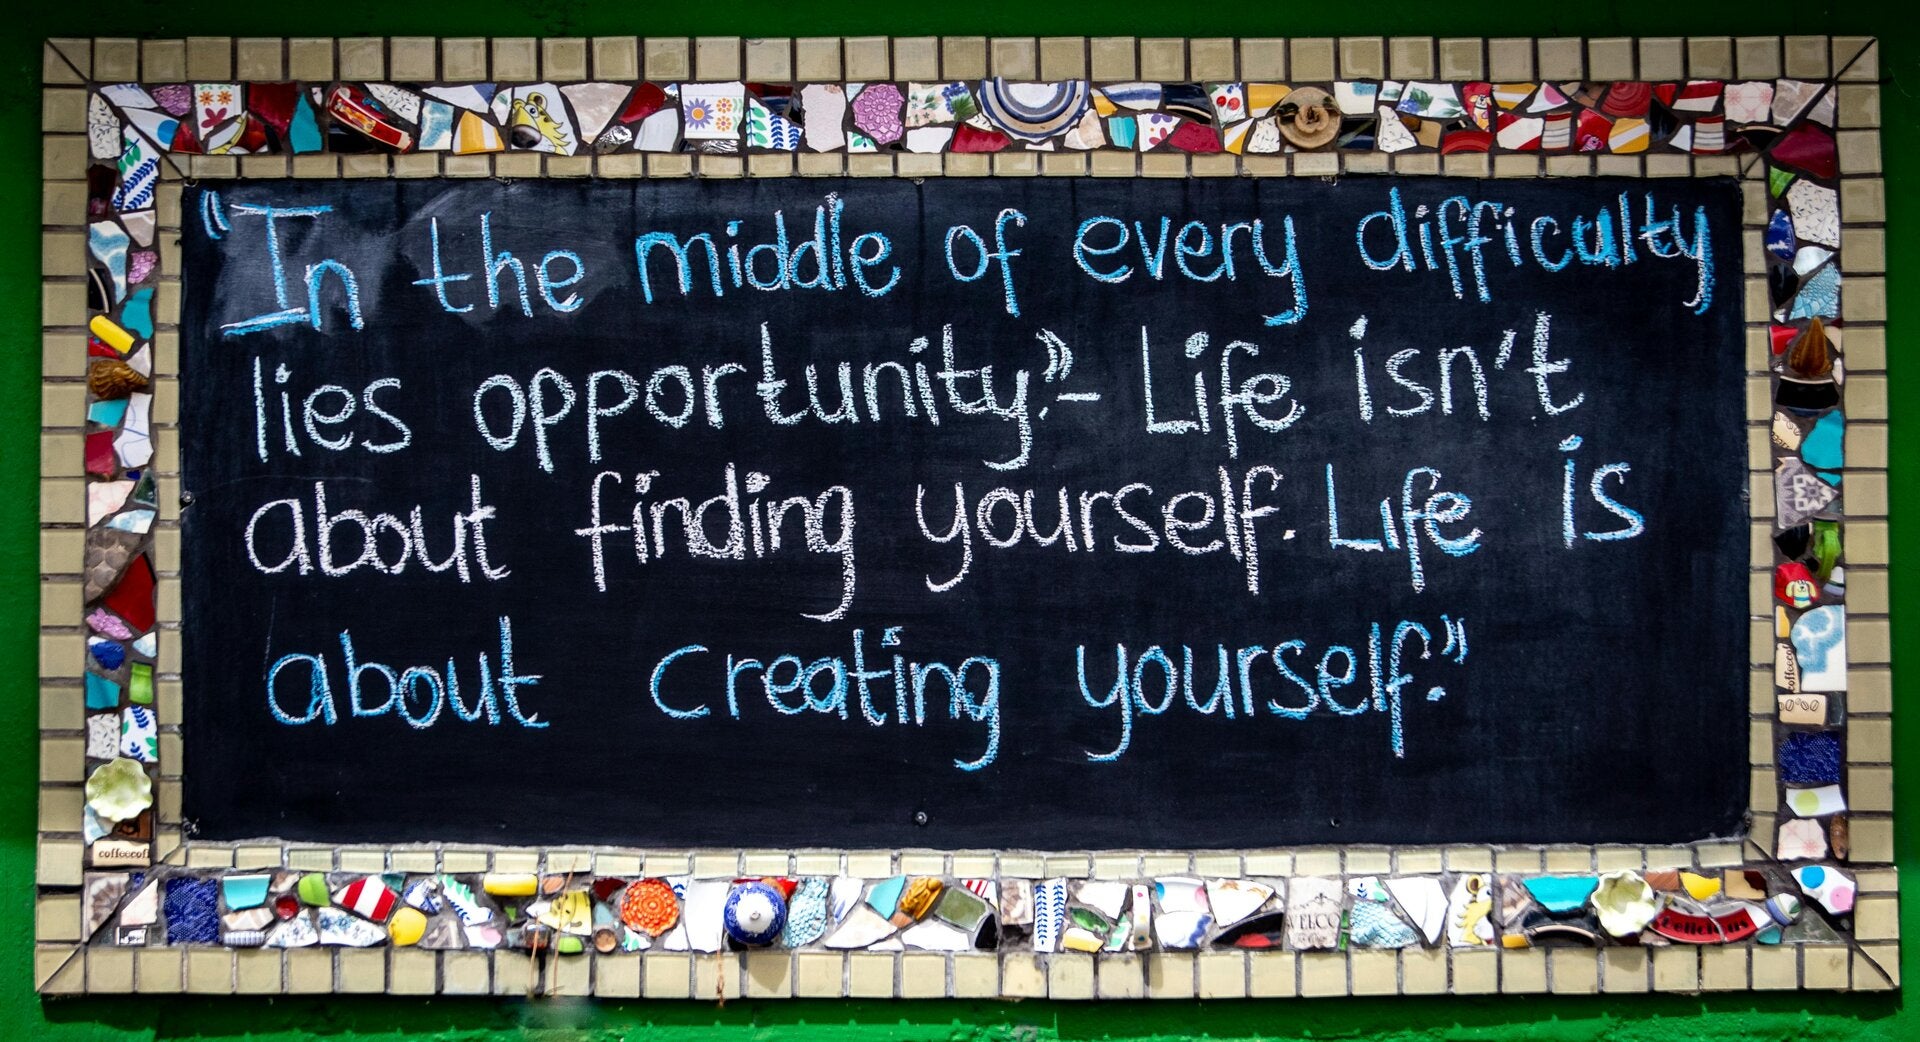 "In the middle of every difficulty
lies opportunity." - Life isn't
about finding yourself. Life is
about creating yourself."
coffeecof
coffeecof
WELCO
delicious